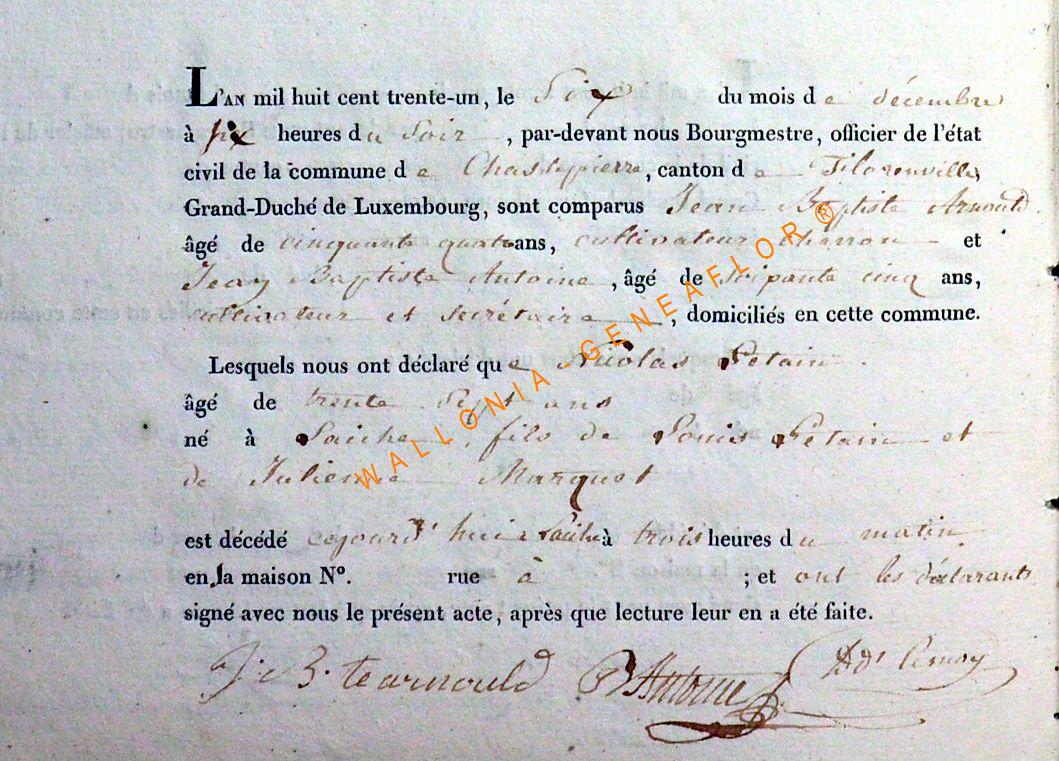 L'AN mil huit cent trente-un, le Six du mois de décembre
à six heures du Soir, par-devant nous Bourgmestre, officier de l'état
civil de la commune de Chassepierre, canton de Florenville,
Grand-Duché de Luxembourg, sont comparus Jean Baptiste Arnould
âgé de cinquante quatre ans, cultivateur et
Jean Baptiste Antoine, âgé de soixante cinq ans,
cultivateur et secrétaire, domiciliés en cette commune.
Lesquels nous ont déclaré que Nicolas Petain
âgé de trente Sept ans
né à Laiche, fils de Louis Petain et
de Julienne Marquet
est décédé cejourd'hui à Laiche à trois heures du matin
en la maison N°. rue à ; et ont les déclarants
signé avec nous le présent acte, après que lecture leur en a été faite.
J. B. te arnould Antoine
WALLONIA GENEAFLOR ®